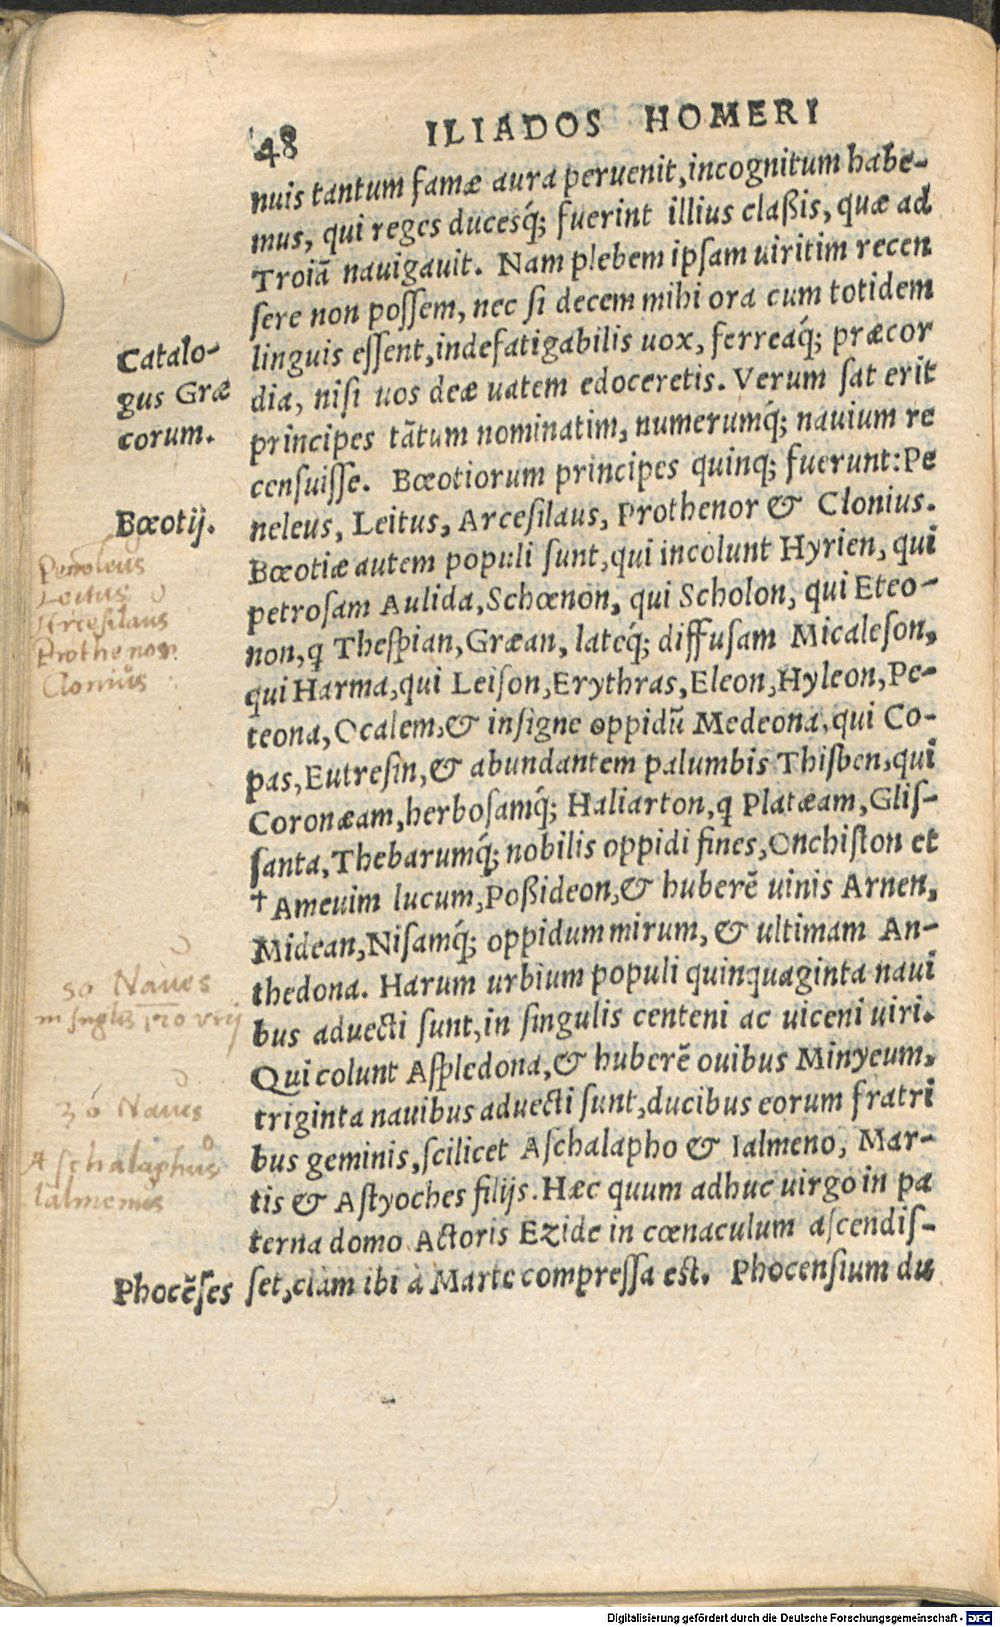 48
ILIADOS HOMERI
nuis tantum famæ aura peruenit, incognitum habe-
mus, qui reges ducesq́; fuerint illius claßis, quæ ad
Troiã nauigauit. Nam plebem ipsam uiritim recen
sere non possem, nec si decem mihi ora cum totidem
linguis essent, indefatigabilis uox, ferreaq́; præcor
dia, nisi uos deæ uatem edoceretis. Verum sat erit
principes tãtum nominatim, numerumq́; nauium re
censuisse. Bœotiorum principes quinq; fuerunt: Pe
neleus, Leitus, Arcesilaus, Prothenor & Clonius.
Bœotiæ autem populi sunt, qui incolunt Hyrien, qui
petrosam Aulida, Schœnon, qui Scholon, qui Eteo-
non, q Thespian, Græan, lateq́; diffusam Micaleson,
qui Harma, qui Leison, Erythras, Eleon, Hyleon, Pe-
teona, Ocalem, & insigne oppidũ Medeona, qui Co-
pas, Eutresin, & abundantem palumbis Thisben, qui
Coronæam, herbosamq́; Haliarton, q Platæam, Glis-
santa, Thebarumq́; nobilis oppidi fines, Onchiston et
†Ameuim lucum, Poßideon, & huberẽ uinis Arnen,
Midean, Nisamq́; oppidum mirum, & ultimam An-
thedona. Harum urbium populi quinquaginta naui
bus aduecti sunt, in singulis centeni ac uiceni uiri.
Qui colunt Aspledona, & huberẽ ouibus Minyeum,
triginta nauibus aduecti sunt, ducibus eorum fratri
bus geminis, scilicet Aschalapho & Ialmeno, Mar-
tis & Astyoches filijs. Hæc quum adhuc uirgo in pa
terna domo Actoris Ezide in cœnaculum ascendis-
set, clàm ibi à Marte compressa est. Phocensium du
Catalo-
gus Græ
corum.
Bœotij.
Penoleus
Leitus
Arcesilaus
Prothenor
Clonius
50 Naues
in singlis 120 virij
30 Naues
Aschalaphus
Ialmenus
Phocẽses
Digitalisierung gefördert durch die Deutsche Forschungsgemeinschaft - DFG